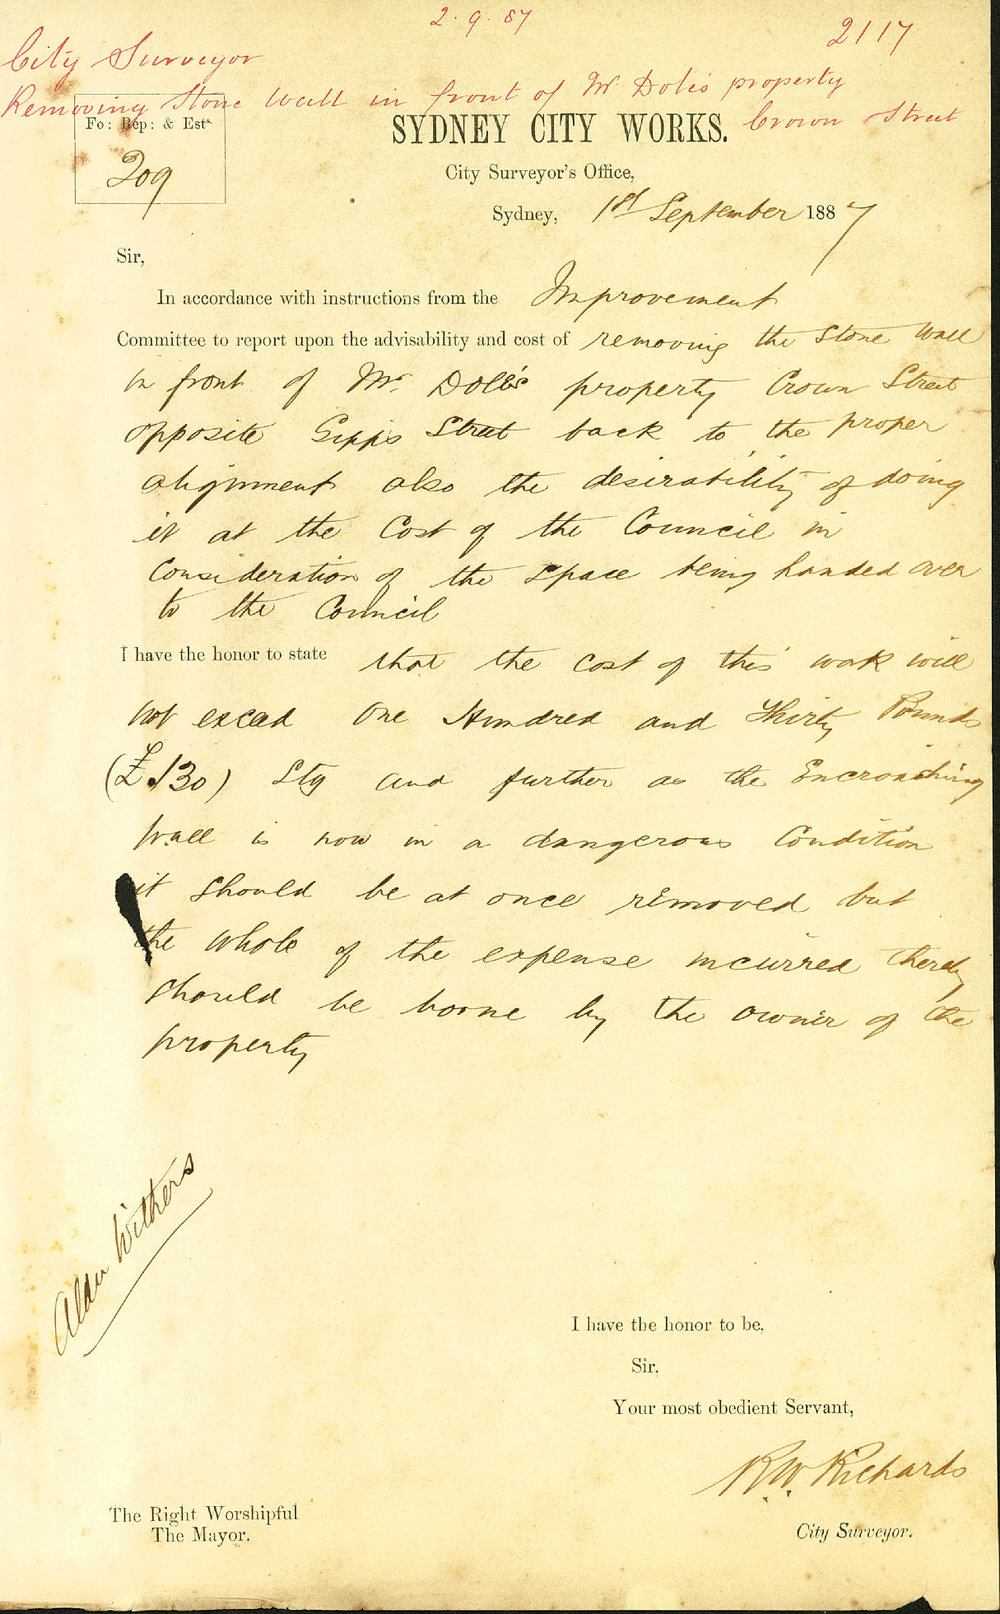 2.9.87
2117
City Surveyor
Removing Stone Wall in front of Mr Dole's property
Crown Street
Fo: Rep: & Est.
209
SYDNEY CITY WORKS.
City Surveyor's Office,
Sydney, 1st September 1887
Sir,
In accordance with instructions from the Improvement
Committee to report upon the advisability and cost of removing the Stone Wall
in front of Mr Dole's property Crown Street
opposite Gipps Street back to the proper
alignment also the desirability of doing
it at the Cost of the Council in
Consideration of the space being handed over
to the Council
I have the honor to state that the cost of this work will
not exceed One Hundred and Thirty Pounds
(£130) Stg and further as the Encroaching
wall is now in a dangerous Condition
it should be at once removed but
the whole of the expense incurred thereby
should be borne by the owner of the
property
Aldn Withers
I have the honor to be,
Sir,
Your most obedient Servant,
R.W. Richards
City Surveyor.
The Right Worshipful
The Mayor.